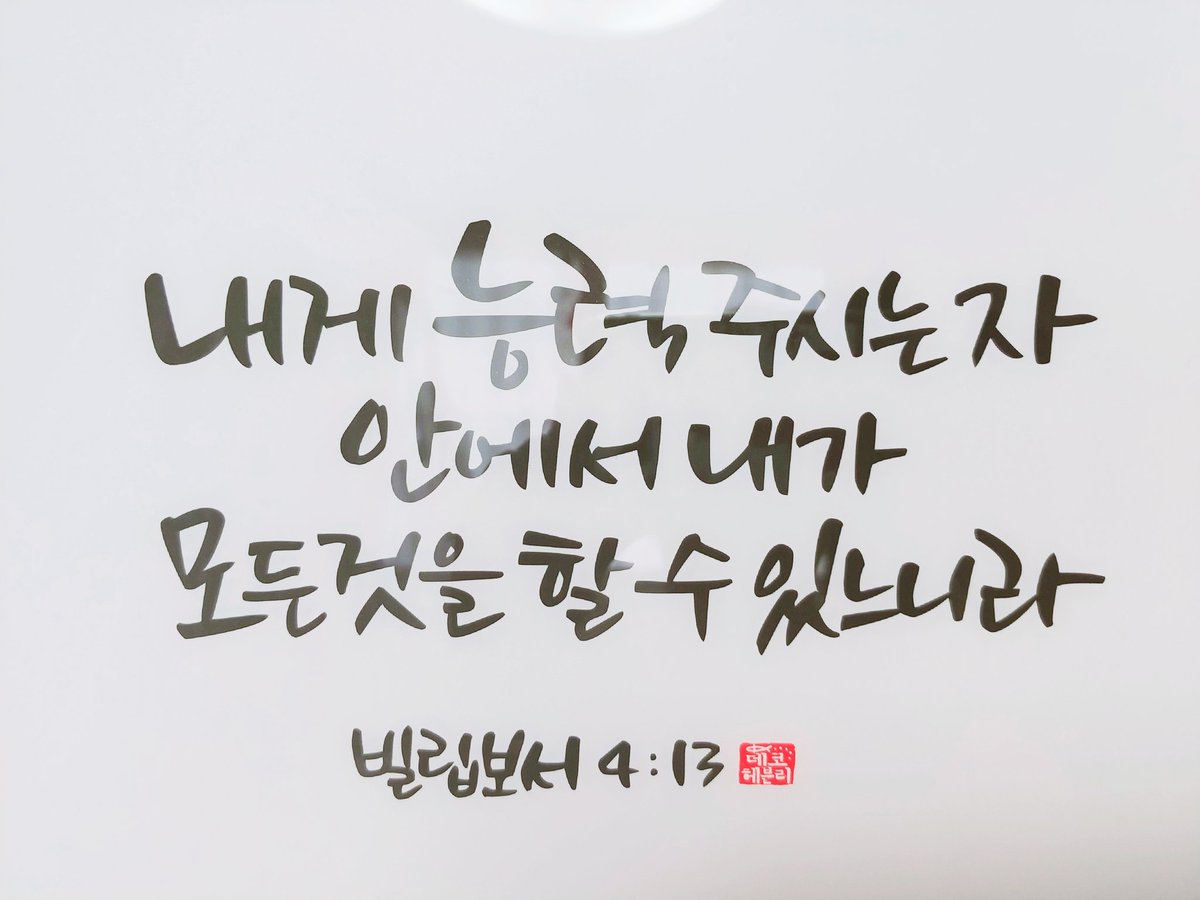 내게 능력 주시는 자
안에서 내가
모든것을 할 수 있느니라
빌립보서 4:13
데코
헤븐리